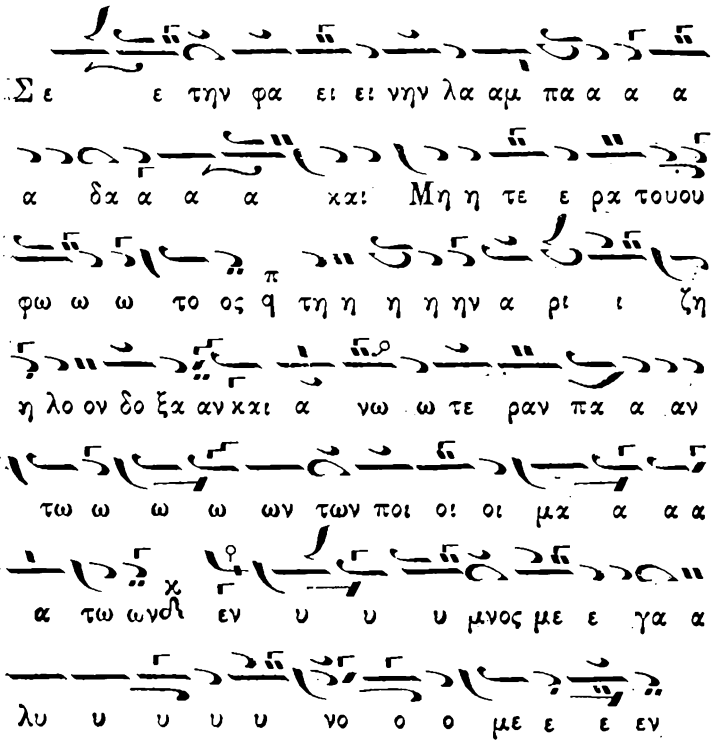 Σε ε την φα ει ει νην λα αμ πα α α α
α δα α α α και Μη η τε ε ρα του ου
φω ω ω το ος q π τη η η η ην α ρι ι ζη
η λο ον δο ξα αν και α νω ω τε ραν πα α αν
τω ω ω ω ων των ποι οι οι μα α α α
α τω ων εν υ υ υ μνος με ε γα α
λυ υ υ υ υ νο ο ο με ε ε εν